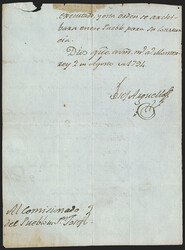 executado, y esta orden se archi-
bara en ese Pueblo para su
Dios gũe. a vmd. m.s a.s Monte-
rey 2 de Agosto de 1794
Arguello
Al Comisionado
del Pueblo de Sn. Josef